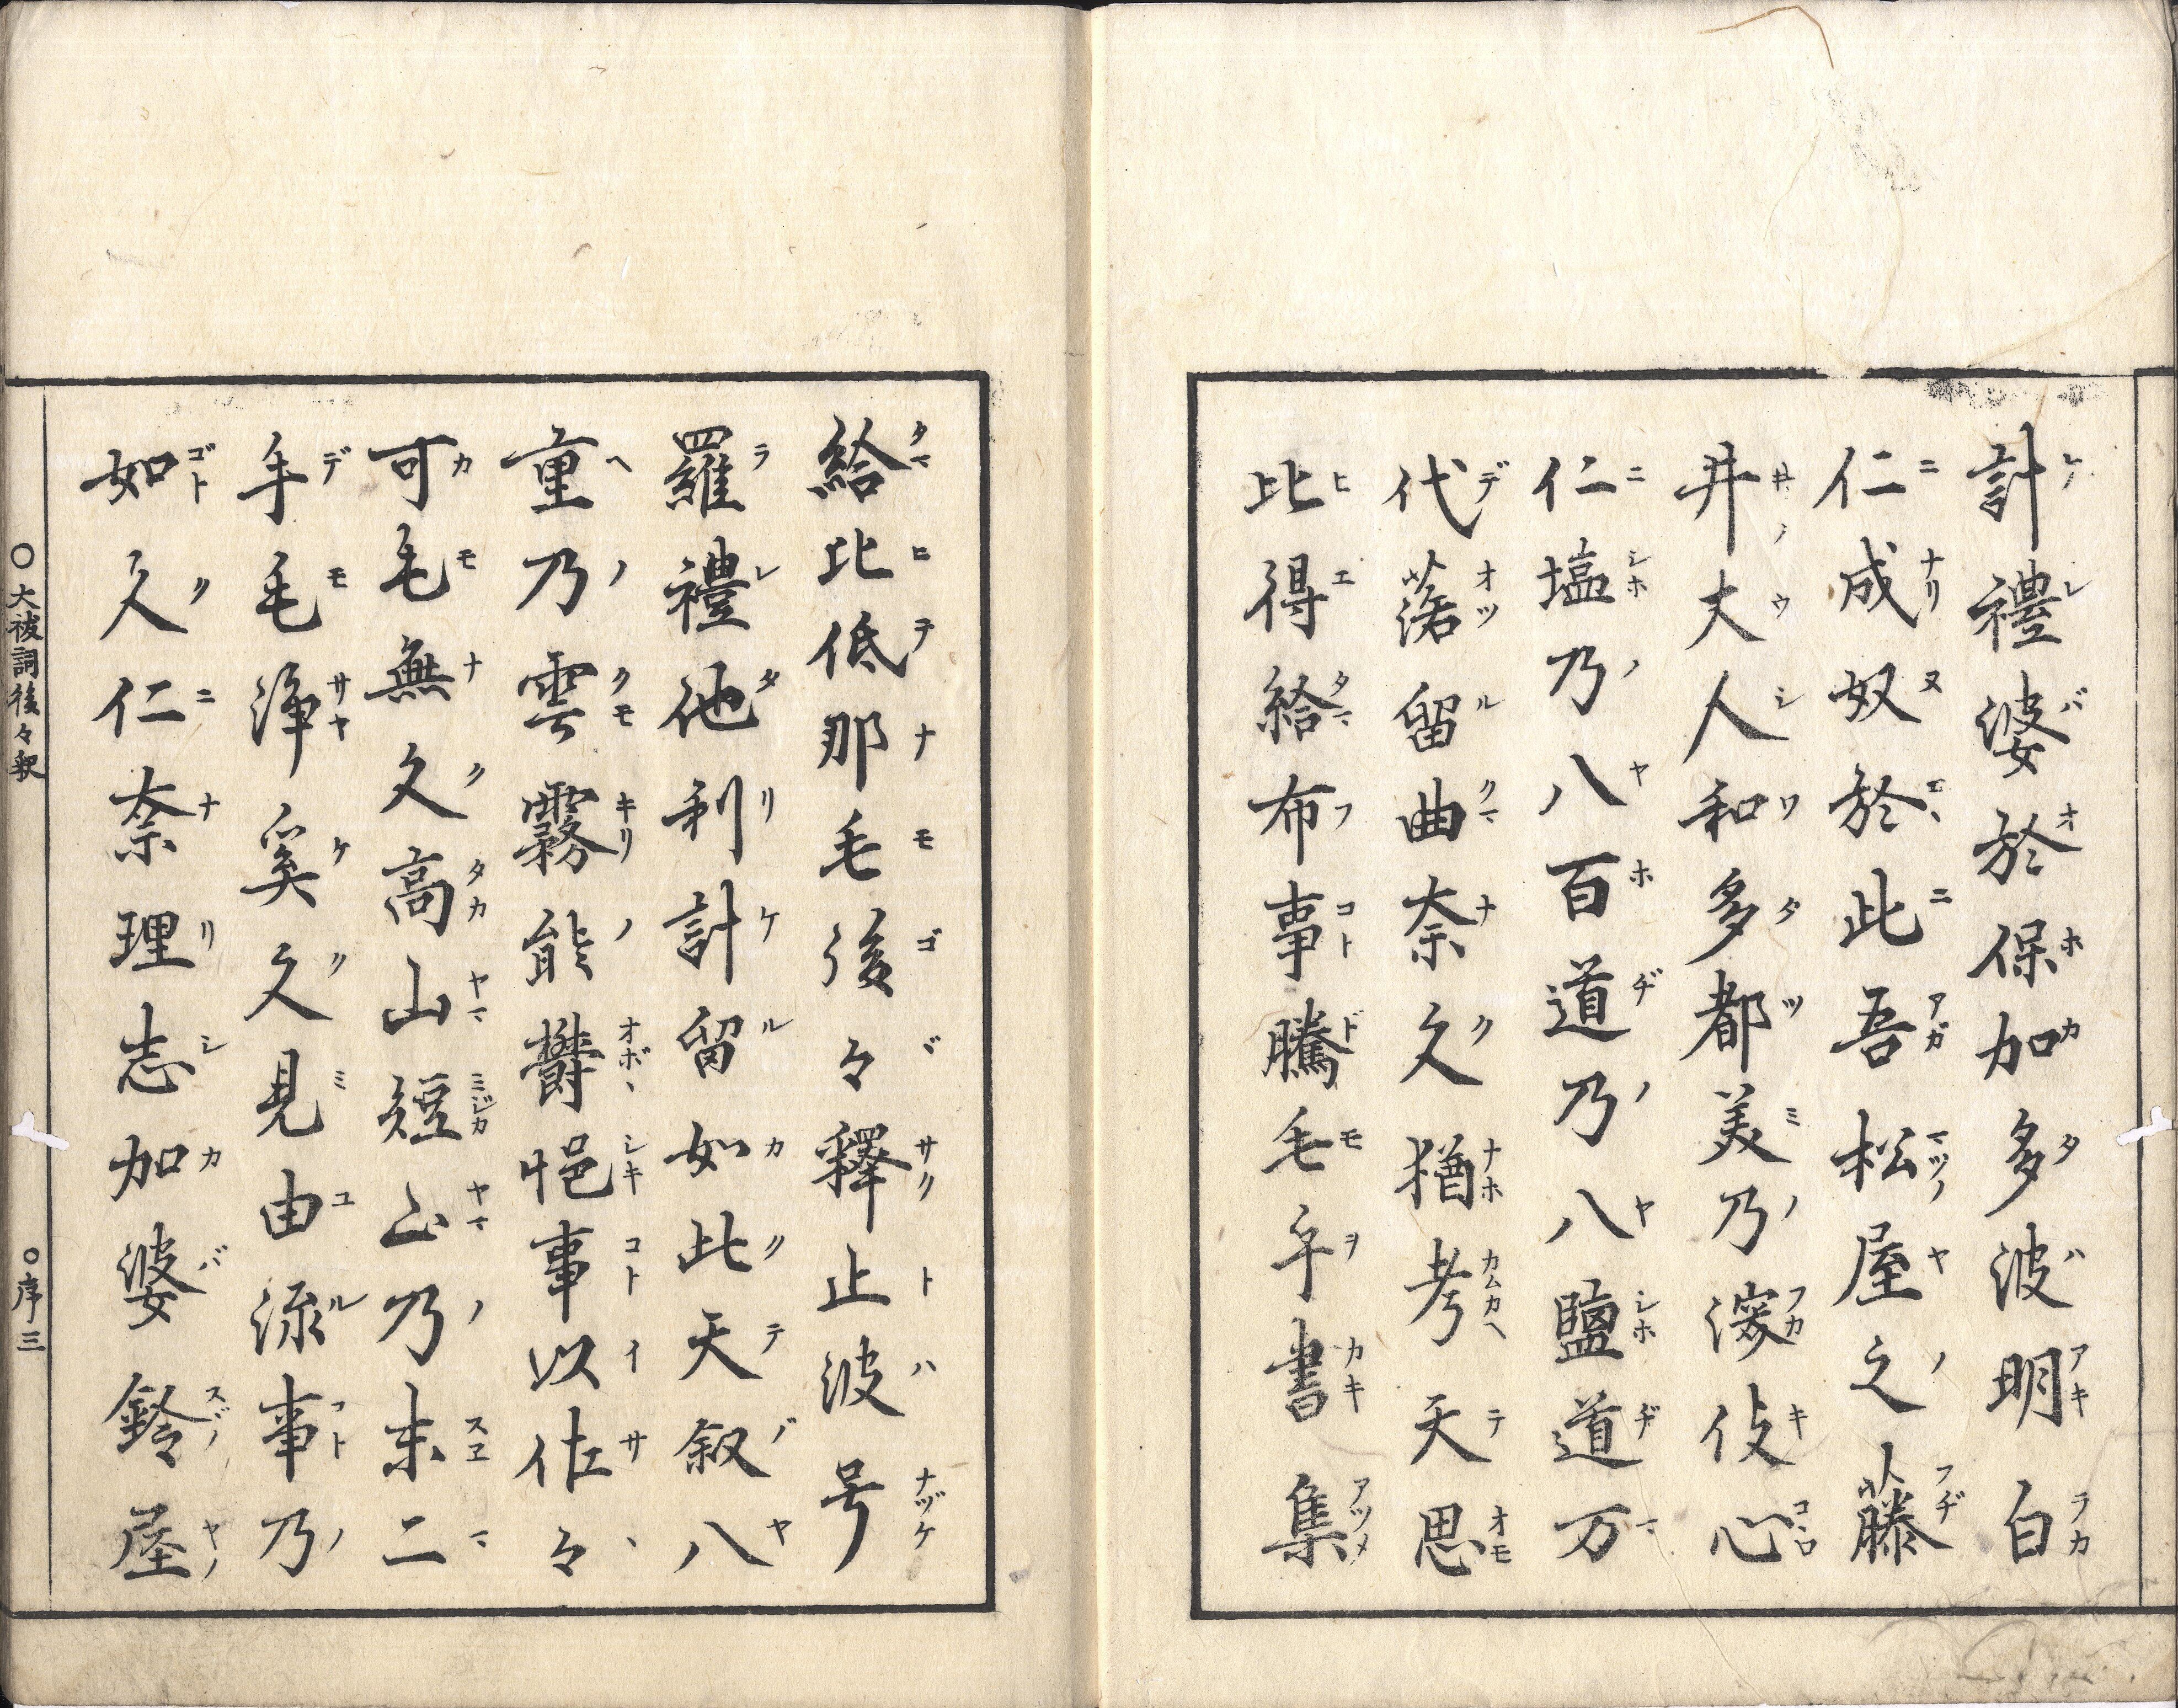 計禮婆於保加多波明白
仁成奴於此吾松屋之藤
井大人和多都美乃深伎心
仁塩乃八百道乃八鹽道万
代落留曲奈久猶考天思
比得給布事騰毛乎書集
給比低那毛後々釋止波号
羅禮他利計留如此天叙八
重乃雲霧能欝悒事以佐々
可毛無久高山短山乃末二
手毛淨奚久見由流事乃
如久仁奈理志加婆鈴屋
○大祓詞後々釈　○序三